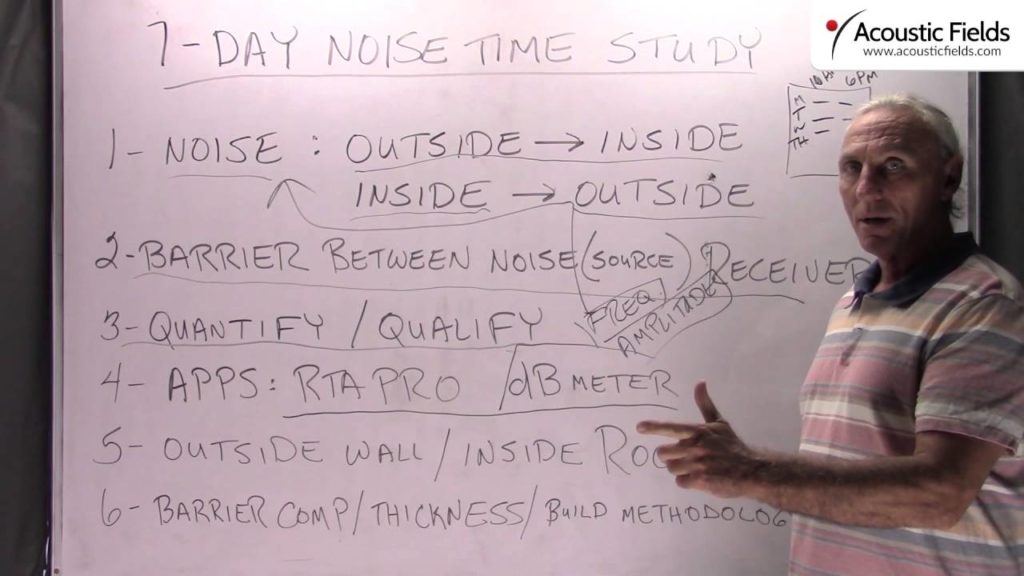 Acoustic Fields
www.acousticfields.com
7-DAY NOISE TIME STUDY
6PM
M
T
W
TH
1- NOISE: OUTSIDE → INSIDE
INSIDE → OUTSIDE
2-BARRIER BETWEEN NOISE (SOURCE) RECEIVER
FREQ
AMPLITUDE
3-QUANTIFY / QUALIFY
4- APPS: RTA PRO / dB METER
5- OUTSIDE WALL / INSIDE
6- BARRIER COMP/THICKNESS/BUILD METHODOLOG